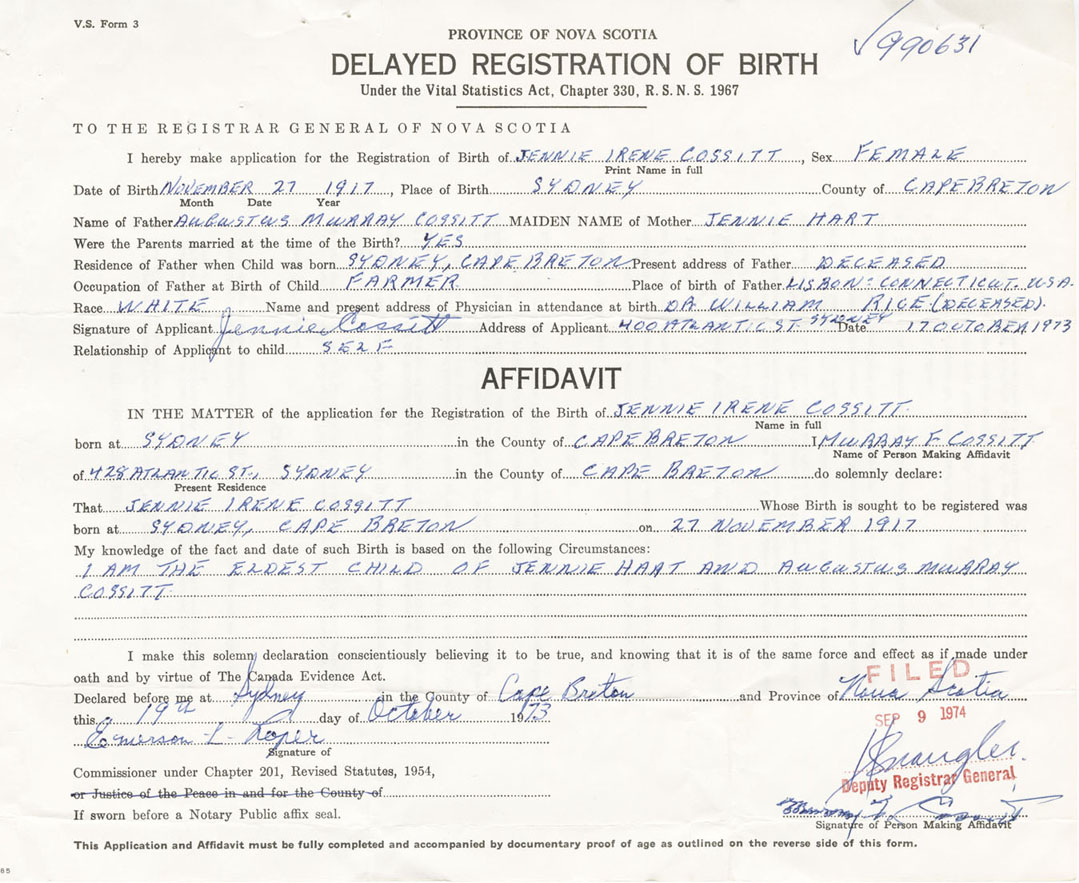 V.S. Form 3
PROVINCE OF NOVA SCOTIA
✓990631
DELAYED REGISTRATION OF BIRTH
Under the Vital Statistics Act, Chapter 330, R.S.N.S. 1967
TO THE REGISTRAR GENERAL OF NOVA SCOTIA
I hereby make application for the Registration of Birth of JENNIE IRENE COSSITT, Sex FEMALE
Print Name in full
Date of Birth NOVEMBER 27 1917, Place of Birth SYDNEY County of CAPE BRETON
Month Date Year
Name of Father AUGUSTUS MURRAY COSSITT MAIDEN NAME of Mother JENNIE HART
Were the Parents married at the time of the Birth? YES
Residence of Father when Child was born SYDNEY, CAPE BRETON Present address of Father DECEASED
Occupation of Father at Birth of Child FARMER Place of birth of Father LISBON: CONNECTICUT. USA.
Race WHITE Name and present address of Physician in attendance at birth DR. WILLIAM RICE (DECEASED).
Signature of Applicant Jennie Cossitt Address of Applicant 400 ATLANTIC ST. SYDNEY Date 17 OCTOBER 1973
Relationship of Applicant to child SELF
AFFIDAVIT
IN THE MATTER of the application for the Registration of the Birth of JENNIE IRENE COSSITT.
Name in full
born at SYDNEY in the County of CAPE BRETON I MURRAY F COSSITT
Name of Person Making Affidavit
of 428 ATLANTIC ST., SYDNEY in the County of CAPE BRETON do solemnly declare:
Present Residence
That JENNIE IRENE COSSITT Whose Birth is sought to be registered was
born at SYDNEY, CAPE BRETON on 27 NOVEMBER 1917
My knowledge of the fact and date of such Birth is based on the following Circumstances:
I AM THE ELDEST CHILD OF JENNIE HART AND AUGUSTUS MURRAY
COSSITT.
I make this solemn declaration conscientiously believing it to be true, and knowing that it is of the same force and effect as if made under
oath and by virtue of The Canada Evidence Act.
FILED
Declared before me at Sydney in the County of Cape Breton and Province of Nova Scotia
this 19th day of October 1973
SEP 9 1974
Emerson L. Roper
Signature of
Commissioner under Chapter 201, Revised Statutes, 1954,
Deputy Registrar General
or Justice of the Peace in and for the County of
Murray F. Cossitt
If sworn before a Notary Public affix seal.
Signature of Person Making Affidavit
This Application and Affidavit must be fully completed and accompanied by documentary proof of age as outlined on the reverse side of this form.
65